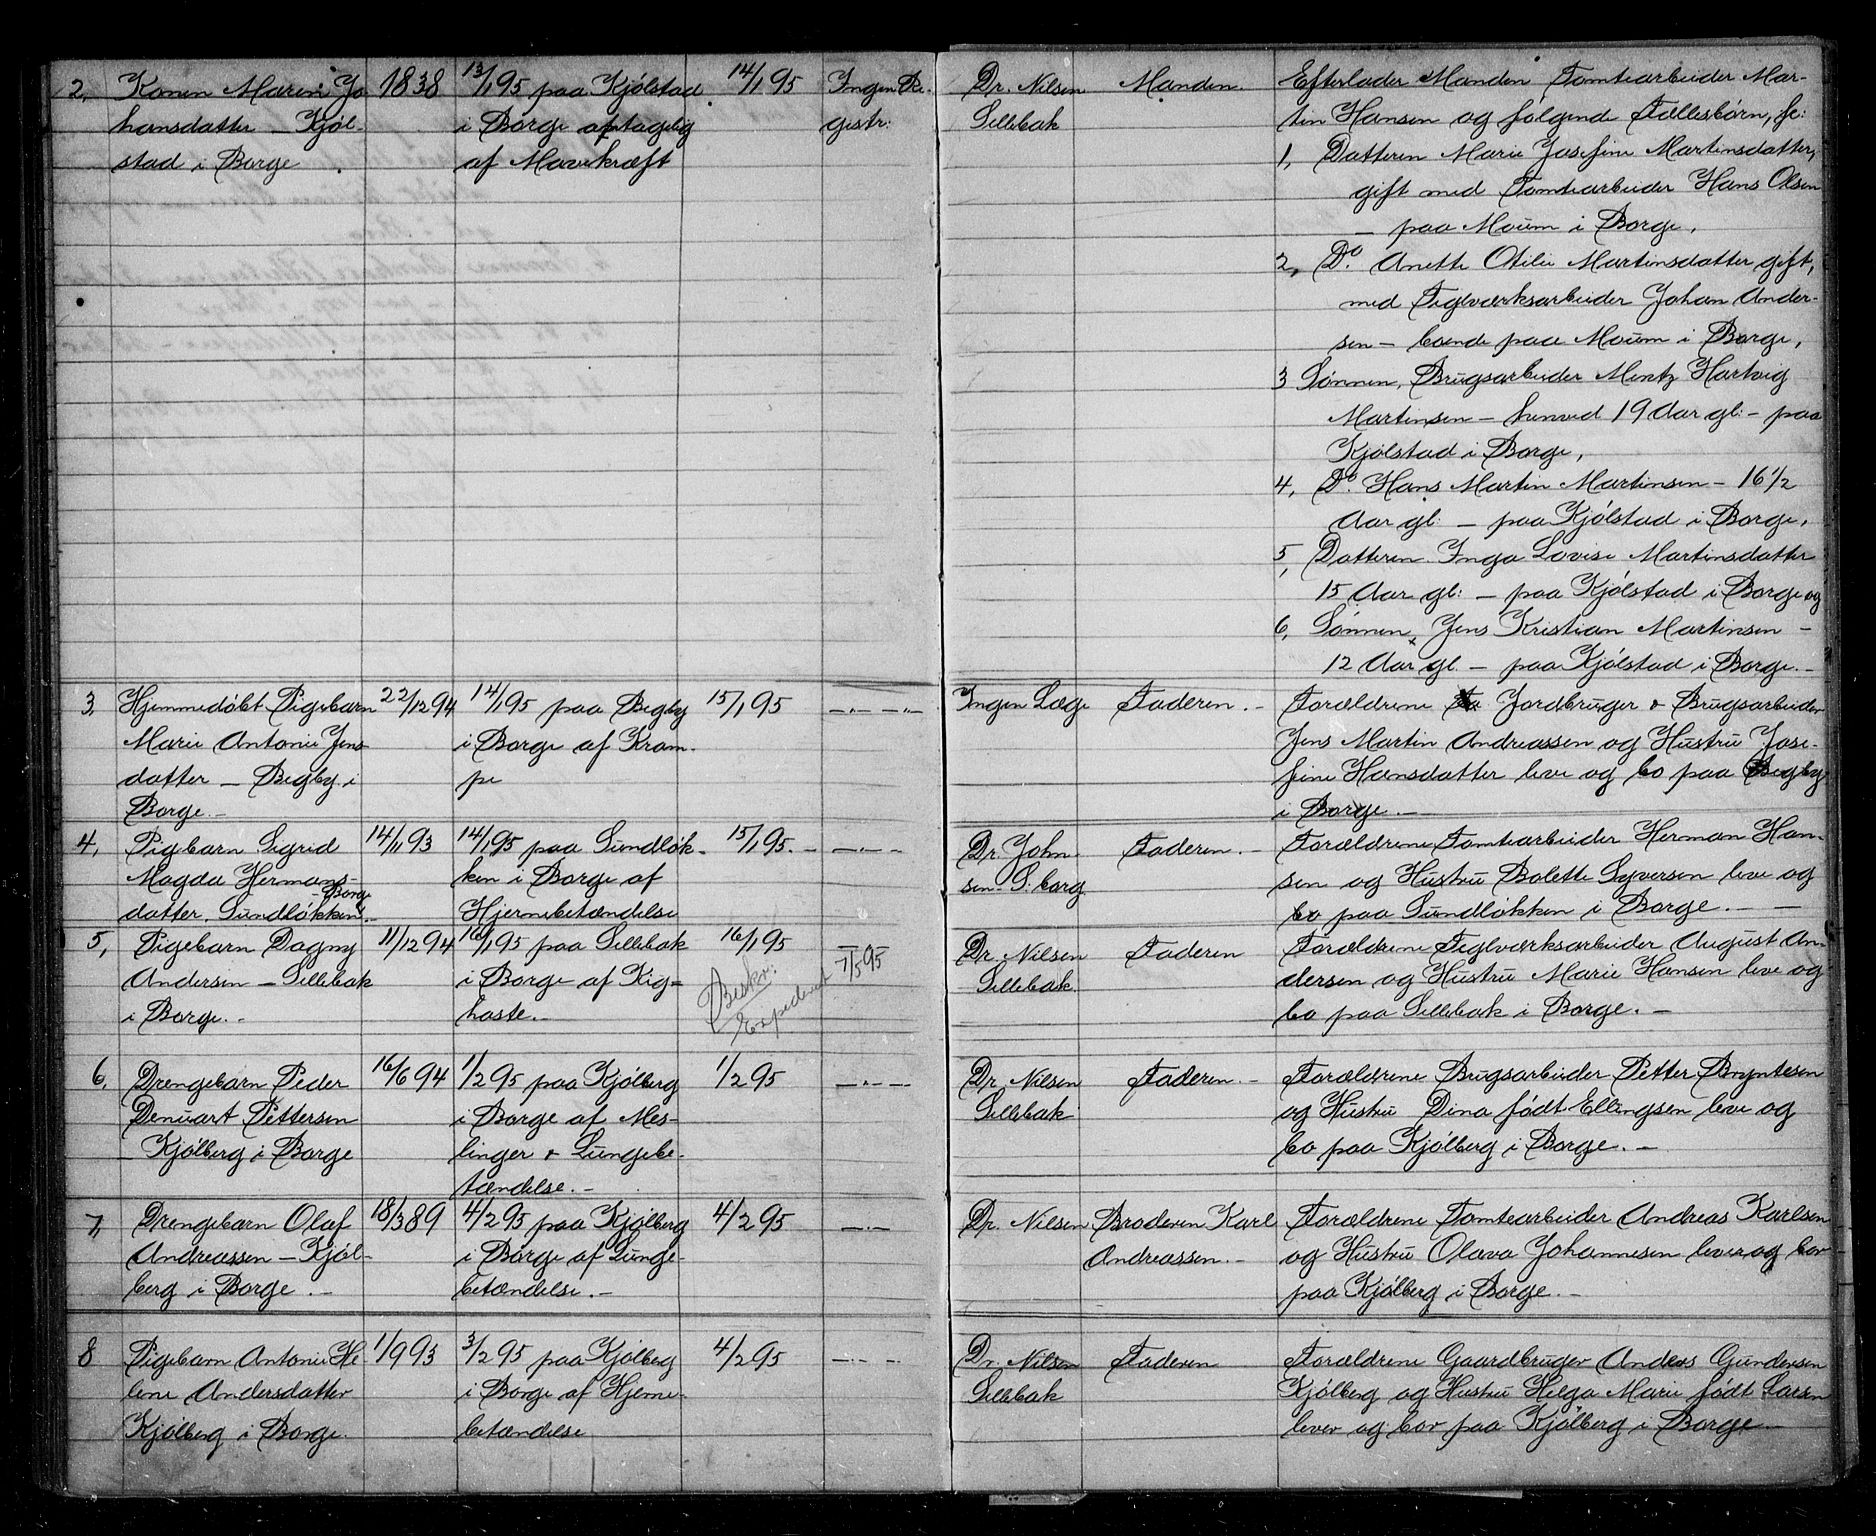 2, Konen Maren Jo 1838 13/1 95 paa Kjölstad 14/1 95 Ingen Re- Dr. Nilsen Manden. Efterlader Manden Tomtearbeider Mar-
hansdatter – Kjöl- i Borge af gestr: Sellebak tin Hansen og følgende Fællesbørn,
stad i Borge af Mavekræft
1, Datteren Marie Josefine Martinsdatter,
gift med Tomtearbeider Hans Olsen
– paa Moum i Borge,
2, Do. Anette Otilie Martinsdatter gift,
med Teglværksarbeider Johan Ander-
sen – boende paa Moum i Borge,
3 Sønnen, Brugsarbeider Mentz Hartvig
Martinsen – henved 19 Aar gl: – paa
Kjölstad i Borge,
4, Do. Hans Martin Martinsen – 16 1/2
Aar gl: – paa Kjölstad i Borge,
5, Datteren Inga Lovise Martinsdatter
15 Aar gl: – paa Kjölstad i Borge og
6, Sønnen, Jens Kristian Martinsen –
12 Aar gl. – paa Kjölstad i Borge. –
3, Hjemmedöbt Pigebarn 22/12 94 14/1 95 paa Begby 15/1 95 –„– –„– Ingen Læge Faderen. – Forældrene Jordbruger & Brugsarbeider
Marie Antonie Jens i Borge af Kram- Jens Martin Andreassen og Hustru Jose-
datter – Begby i pe fine Hansdatter leve og bo paa Begby
Borge. – i Borge. –
4, Pigebarn Sigrid 14/11 93 14/1 95 paa Sundlök- 15/1 95. – –„– – Dr. John- Faderen. – Forældrene Tomtearbeider Herman Han-
Magda Hermans- ken i Borge af sen S.borg sen og Hustru Bolette Syversen leve og
datter. Sundlökken Borge. Hjernebetændelse bo paa Sundlökken i Borge. – –
5, Pigebarn Dagny 11/12 94 16/1 95 paa Sellebak 16/1 95 – Dr. Nilsen Faderen Forældrene Teglværksarbeider August An-
Andersen – Sellebak i Borge af Kig- Beskr: Expederet 7/5 95 Sellebak dersen og Hustru Marie Hansen leve og
i Borge. – hoste. – bo paa Sellebak i Borge. –
6, Drengebarn Peder 16/6 94 1/2 95 paa Kjölberg 1/2 95 –„– – Dr. Nilsen Faderen. – Forældrene Brugsarbeider Petter Bryntesen
Denuart Pettersen i Borge af Mes- Sellebak og Hustru Dina født Ellingsen leve og
– Kjölberg i Borge linger & Lungebe- bo paa Kjölberg i Borge. –
tændelse. –
7, Drengebarn Olaf 18/3 89 4/2 95 paa Kjölberg 4/2 95 –„– Dr. Nilsen Broderen Karl Forældrene Tomtearbeider Andreas Karlsen
Andreassen – Kjöl- i Borge af Lunge Andreassen. – og Hustru Olava Johannesen lever og bor
berg i Borge. – betændelse. – paa Kjölberg i Borge. –
8 Pigebarn Antonie He 1/9 93 3/2 95 paa Kjölberg 4/2 95 –„– – Dr. Nilsen Faderen Forældrene Gaardbruger Anders Gundersen
lene Andersdatter i Borge af Hjerne- Sellebak Kjölberg og Hustru Helga Marie født Larsen
Kjölberg i Borge. betændelse lever og bor paa Kjölberg i Borge –